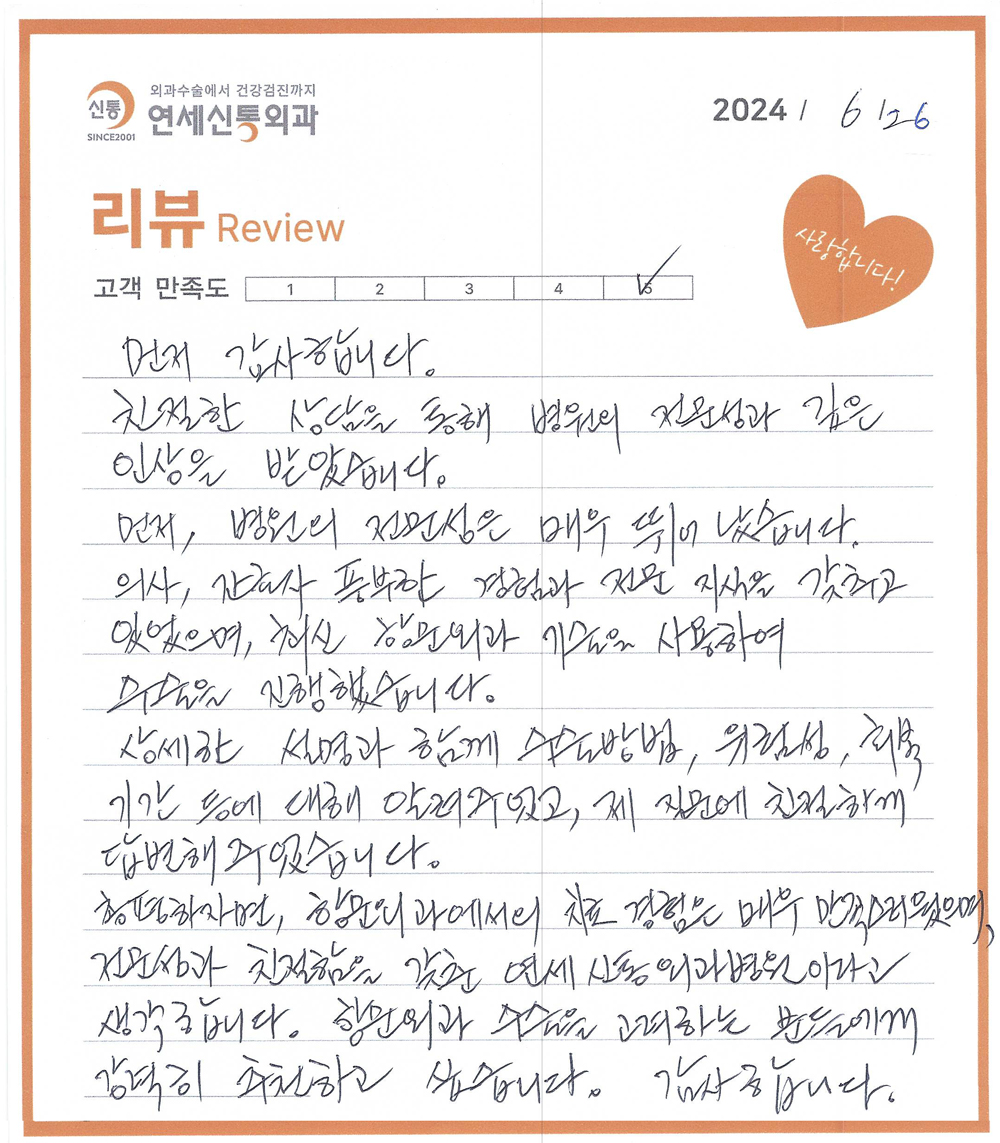 신통
SINCE2001
외과수술에서 건강검진까지
연세신통외과
2024 / 6 / 26
리뷰 Review
사랑합니다!
고객 만족도 1 2 3 4 5
먼저 감사합니다.
친절한 상담을 통해 병원의 전문성과 깊은
인상을 받았습니다.
먼저, 병원의 전문성은 매우 뛰어 났습니다.
의사, 간호사 풍부한 경험과 전문 지식을 갖추고
있었으며, 최신 항문외과 기술을 사용하여
수술을 진행했습니다.
상세한 설명과 함께 수술방법, 위험성, 회복
기간 등에 대해 알려주었고, 제 질문에 친절하게
답변해 주었습니다.
총평하자면, 항문외과에서의 치료 경험은 매우 만족스러웠으며,
전문성과 친절함을 갖춘 연세신통외과병원이라고
생각합니다. 항문외과 수술을 고려하는 분들에게
강력히 추천하고 싶습니다. 감사합니다.